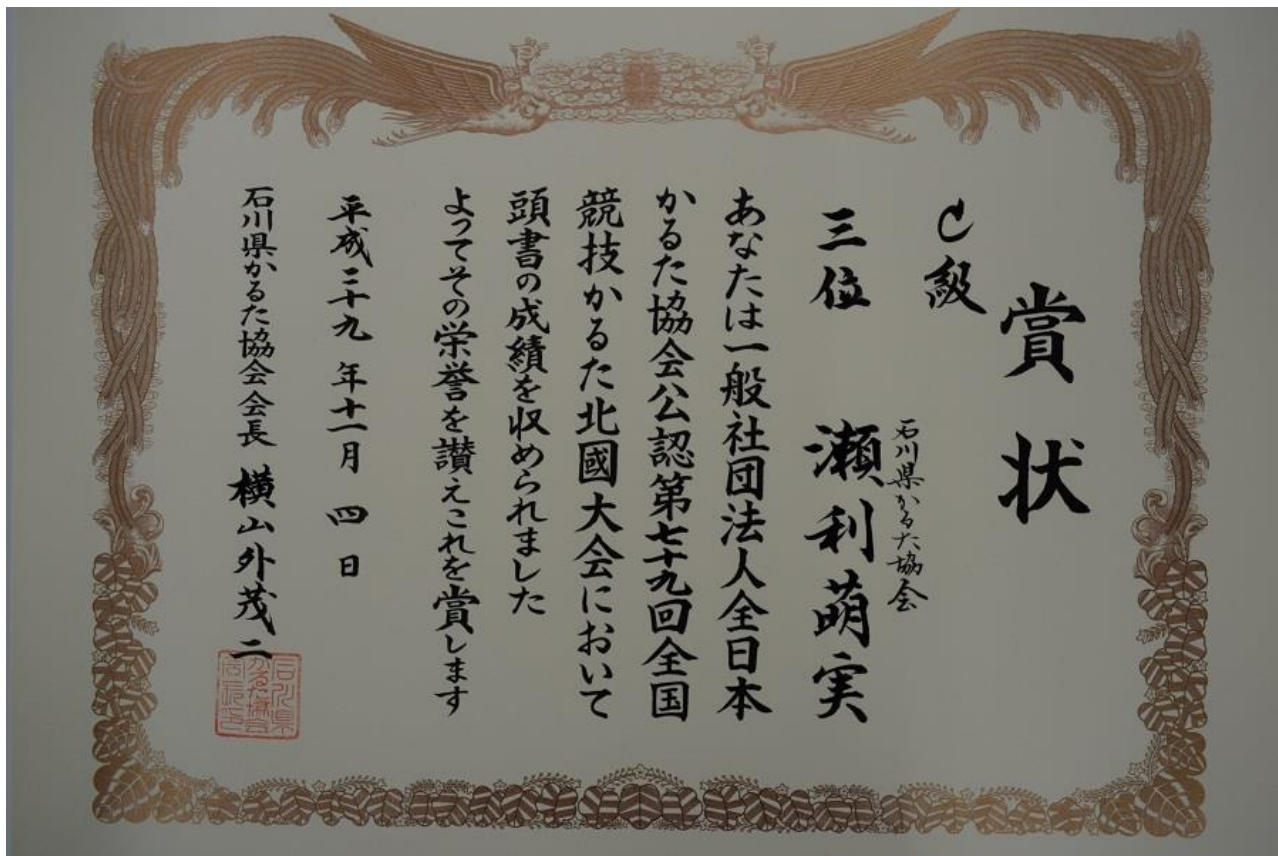 賞状
C級
石川県かるた協会
三位 瀬利萌実
あなたは一般社団法人全日本
かるた協会公認第七十九回全国
競技かるた北國大会において
頭書の成績を収められました
よってその栄誉を讃えこれを賞します
平成二十九 年十一月 四 日
石川県かるた協会会長 横山外茂二
石川県
かるた協会